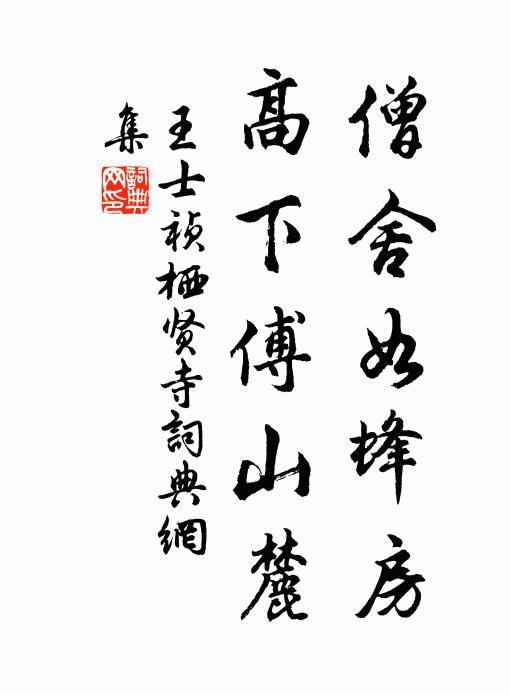 僧舍如蜂房
高下傅山麓
王士祯栖贤寺詞典網
集
詞典网印